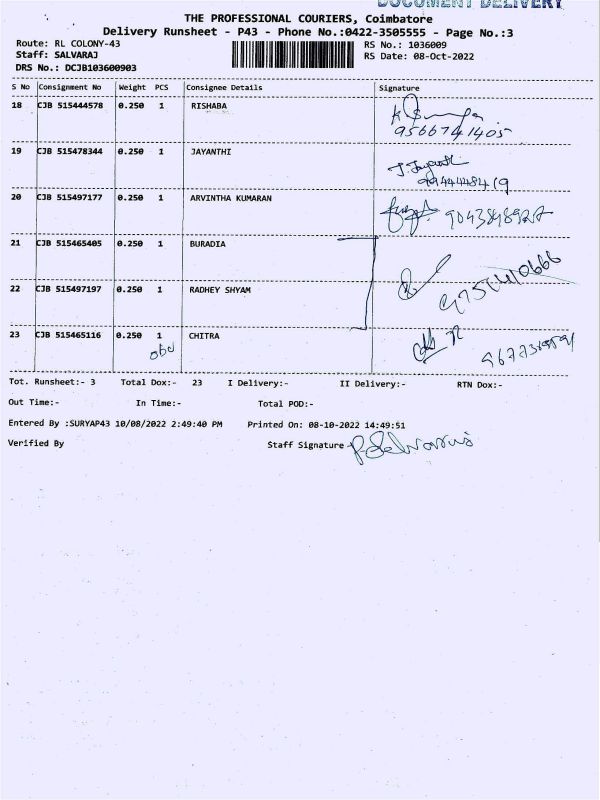 DOCUMENT DELIVERY
THE PROFESSIONAL COURIERS, Coimbatore
Delivery Runsheet - P43 - Phone No.:0422-3505555 - Page No.:3
Route: RL COLONY-43
RS No.: 1036009
Staff: SALVARAJ
RS Date: 08-Oct-2022
DRS No.: DCJB103600903
S No Consignment No Weight PCS Consignee Details Signature
18 CJB 515444578 0.250 1 RISHABA
9566741405
19 CJB 515478344 0.250 1 JAYANTHI
J. Jayanthi
9944448419
20 CJB 515497177 0.250 1 ARVINTHA KUMARAN
21 CJB 515465405 0.250 1 BURADIA
22 CJB 515497197 0.250 1 RADHEY SHYAM
23 CJB 515465116 0.250 1 CHITRA
Tot. Runsheet:- 3 Total Dox:- 23 I Delivery:- II Delivery:- RTN Dox:-
Out Time:- In Time:- Total POD:-
Entered By :SURYAP43 10/08/2022 2:49:40 PM Printed On: 08-10-2022 14:49:51
Verified By Staff Signature